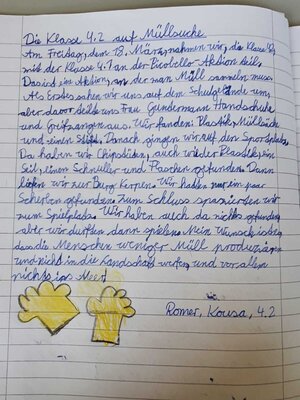 Die Klasse 4.2 auf Müllsuche
Am Freitag, dem 18. März, nahmen wir, die Klasse 4.2,
mit der Klasse 4.1 an der Picobello-Aktion teil.
Das ist ein Aktion, an der man Müll sammeln muss.
Als Erstes sahen wir uns auf dem Schulgelände um,
aber davor teilte uns Frau Gundermann Handschuhe
und Greifzangen aus. Wir fanden: Plastik, Müllsäcke
und einen Stift. Danach gingen wir auf den Sportplatz.
Da haben wir Chipstüten, auch wieder Plastik, ein
Seil, einen Schnuller und Flaschen gefunden. Dann
liefen wir zur Burg Kerpen. Wir haben nur ein paar
Scherben gefunden. Zum Schluss spazierten wir
zum Spielplatz. Wir haben auch da nichts gefunden,
aber wir durften dann spielen. Mein Wunsch ist es,
dass die Menschen weniger Müll produzieren
und nicht in die Landschaft werfen und vor allem
nichts ins Meer!
Romer, Kousa, 4.2